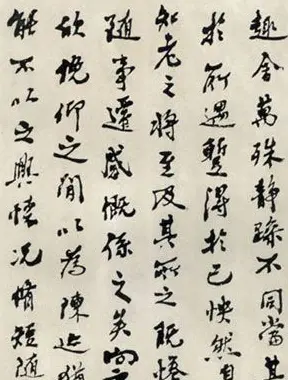 趣舍萬殊靜躁不同當其
於所遇蹔得於己快然自
知老之將至及其所之既惓
隨事遷感慨係之矣向之
欣俛仰之閒以為陳迹猶
能不以之興懷況脩短隨